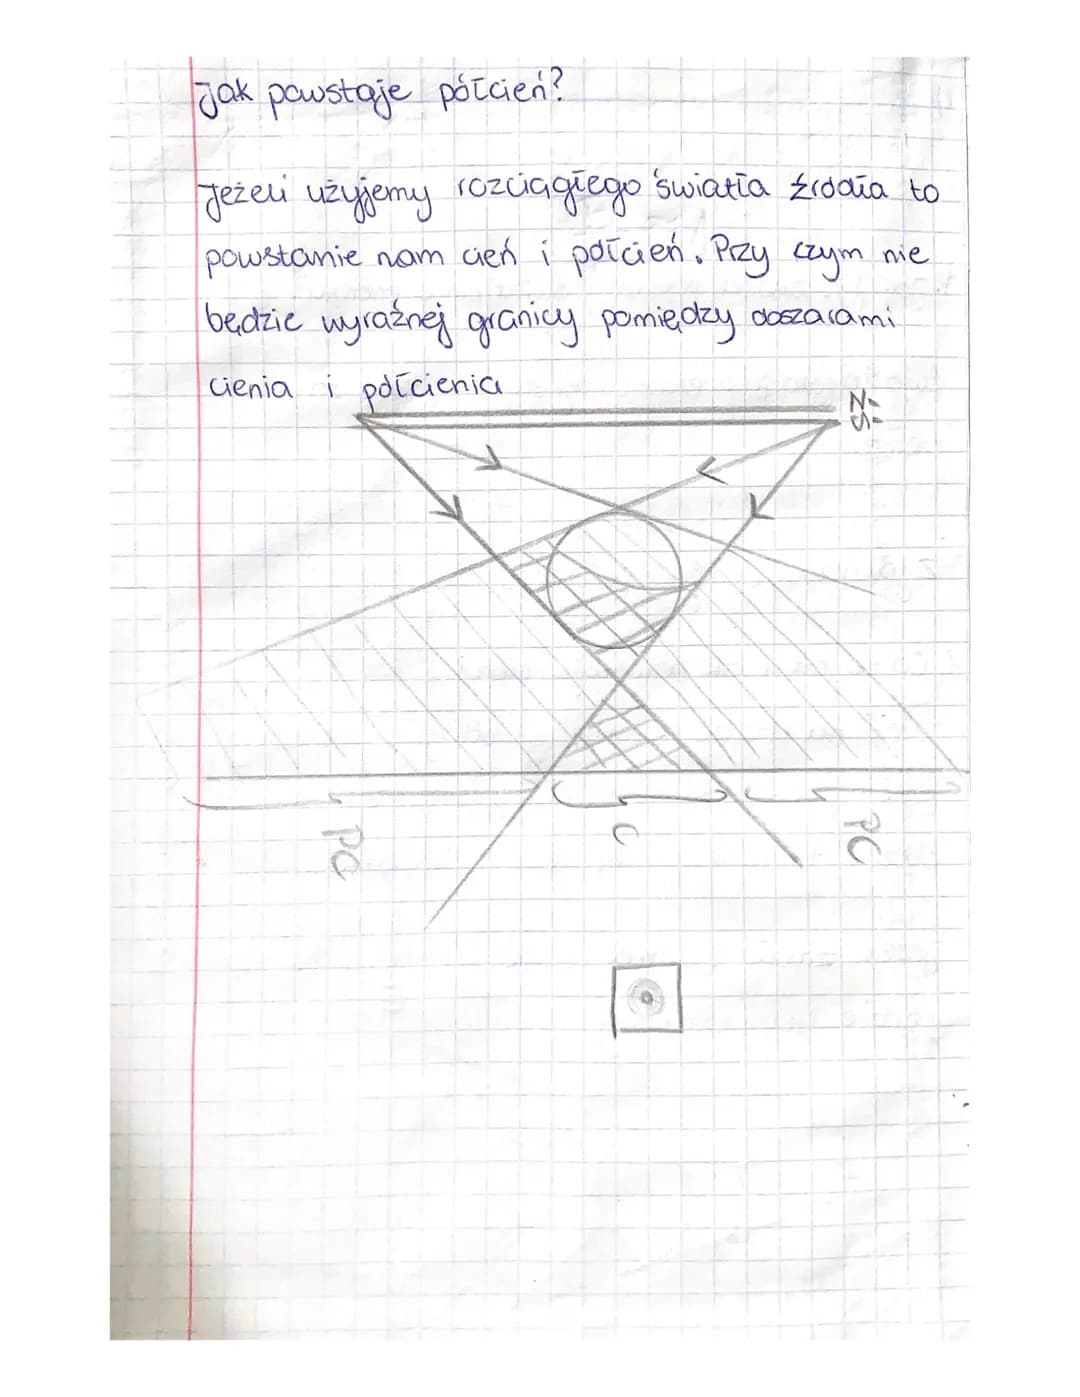 Jak powstaje półcień?
Jeżeli użyjemy rozciągłego światła źródła to
powstanie nam cień i półcień. Przy czym nie
będzie wyraźnej granicy pomiędzy
cienia i półcienia
PC
C
PC